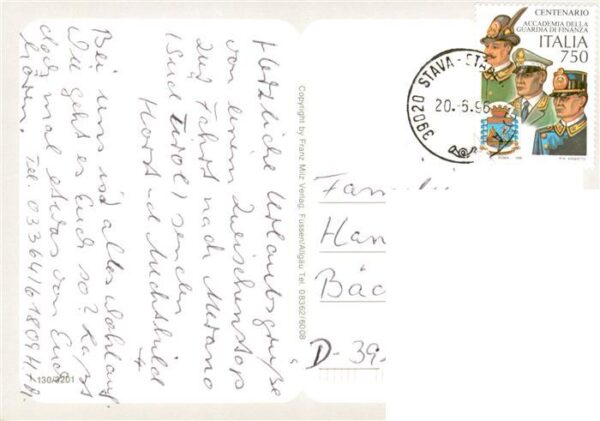 Herzliche Urlaubsgrüße
von einem Zwischenstop
zur Fahrt nach Merano
(Südtirol) senden
Horst und
Bei uns ist alles wohlauf
Wie geht es Euch so? Laßt
doch mal etwas von Euch
hören. Tel. 03364/61809
130/3201
Copyright by Franz Milz Verlag, Füssen/Allgäu Tel. 08362/6008
CENTENARIO
ACCADEMIA DELLA
GUARDIA DI FINANZA
ITALIA
750
39020 STAVA - STA
20.6.96
ROMA
Fam
Han
Bäc
D-39